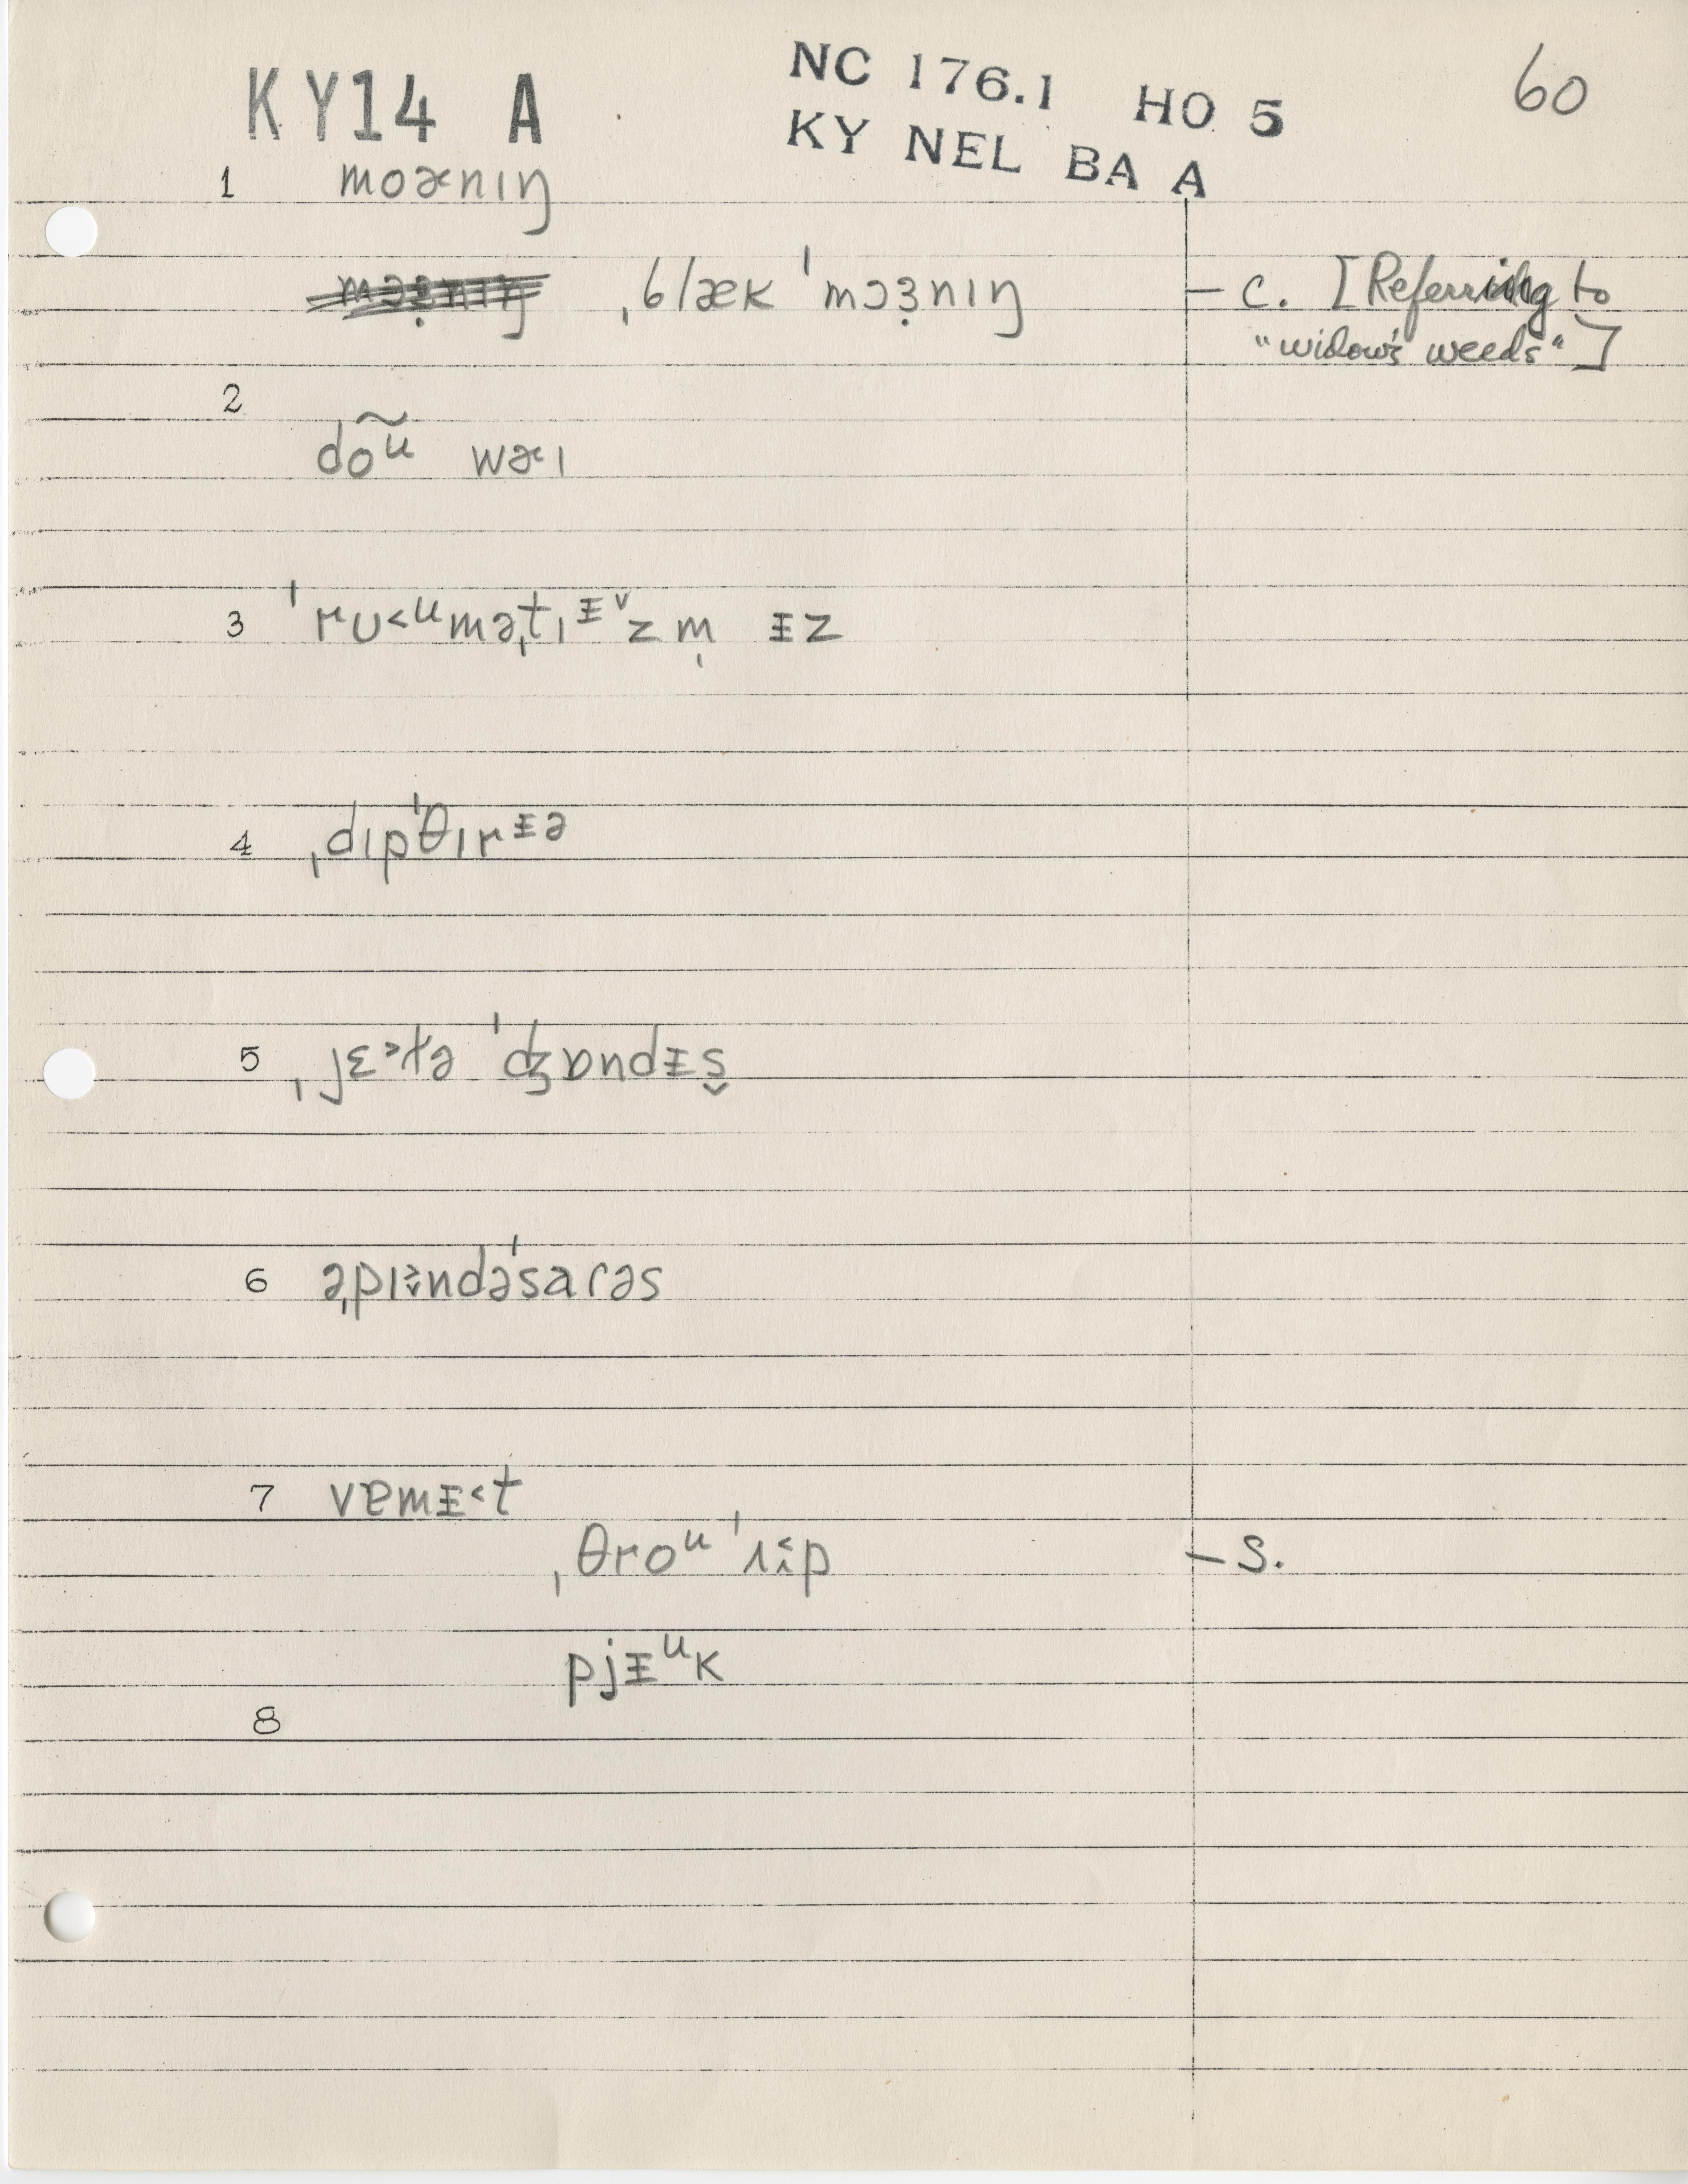 KY14 A
NC 176.1 HO 5
KY NEL BA A
60
1 moɚnɪŋ
ˌblæk ˈmɔɜ̣nɪŋ – c. [Referring to
"widow's weeds"]
2
do͠ᵘ wɚɪ
3 ˈrʊ˂ᵘməˌtɪᵻ˅zm̩ ᵻz
4 ˌdɪpˈθɪrᵻə
5 ˌjɛ˃ɫə ˈʤɒndᵻs̬
6 əˌpɪɛndəˈsaɾəs
7 vɐmᵻ˂t
ˌθroᵘ ˈʌip – S.
pjᵻᵘk
8